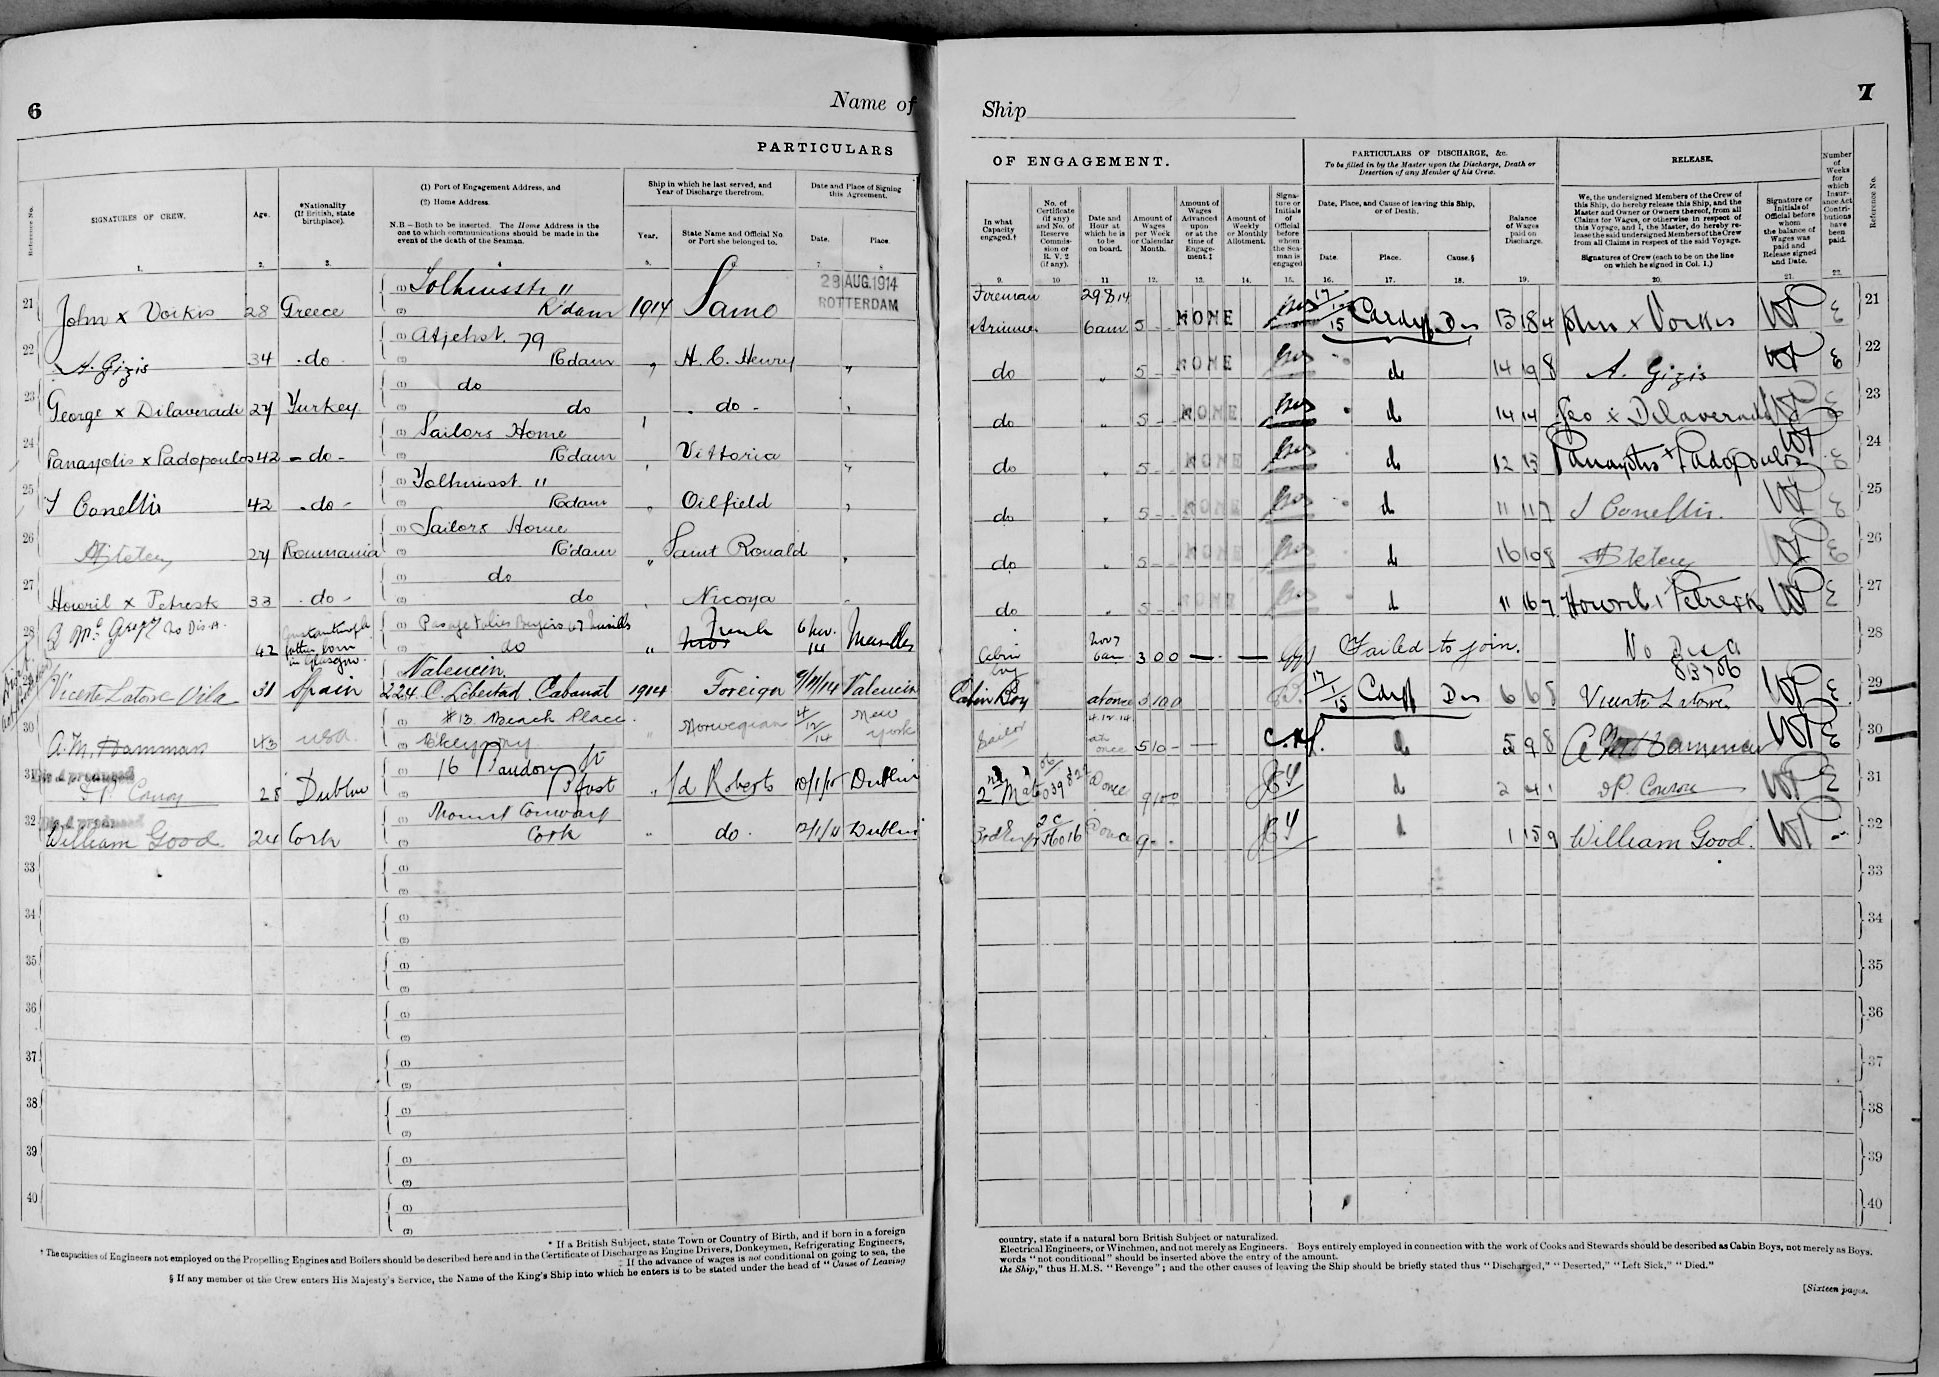 6
Name of
PARTICULARS
Reference No.
SIGNATURES OF CREW.
Age.
*Nationality
(If British, state
birthplace).
(1) Port of Engagement Address, and
(2) Home Address.
N.B.—Both to be inserted. The Home Address is the
one to which communications should be made in the
event of the death of the Seaman.
Ship in which he last served, and
Year of Discharge therefrom.
Year.
State Name and Official No.
or Port she belonged to.
Date and Place of Signing
this Agreement.
Date.
Place.
1. 2. 3. 4. 5. 6. 7. 8
21 John x Vorkis 28 Greece (1) Tolhuisstr 11
(2) R'dam 1914 Same 28 AUG. 1914
ROTTERDAM
22 A. Gizis 34 - do - (1) Atjehst. 79
(2) R'dam " H. C. Henry "
23 George x Dilaveradi 27 Turkey. (1) do
(2) do - do -
24 Panayotis x Padopoulos 42 - do - (1) Sailors Home
(2) R'dam Vittoria "
25 J Conellis 42 - do - (1) Tolhuisst. 11
(2) R'dam " Oilfield
26 27 Roumania (1) Sailors Home
(2) R'dam " Saint Ronald
27 Howril x Petresk 33 - do - (1) do
(2) do Nicoya
28 No Dis. A. 42 Constantinople
father born
in Glasgow.
(2) do " French 6 Nov. 14
29 Vicente Latorre Vila 31 Spain Valencia
224 C. Libertad Cabanal 1914 Foreign 9/11/14 Valencia
30 A. M. Hamman 43 USA. (1) #13 Beach Place.
(2) " Norwegian 4/12/14 New York
31 Dis. A produced
28 Dublin (1) 16 St
(2) Bfast " Ld Roberts 10/1/15 Dublin
32 Dis. A produced
William Good 24 Cork (1) Mount
(2) Cork " do. Dublin
33 (1)
(2)
34 (1)
(2)
35 (1)
(2)
36 (1)
(2)
37 (1)
(2)
38 (1)
(2)
39 (1)
(2)
40 (1)
(2)
* If a British Subject, state Town or Country of Birth, and if born in a foreign
† The capacities of Engineers not employed on the Propelling Engines and Boilers should be described here and in the Certificate of Discharge as Engine Drivers, Donkeymen, Refrigerating Engineers,
‡ If the advance of wages is not conditional on going to sea, the
§ If any member of the Crew enters His Majesty's Service, the Name of the King's Ship into which he enters is to be stated under the head of "Cause of Leaving
Ship
7
OF ENGAGEMENT.
PARTICULARS OF DISCHARGE, &c.
To be filled in by the Master upon the Discharge, Death or
Desertion of any Member of his Crew.
RELEASE.
Number
of
Weeks
for
which
Insur-
ance Act
Contri-
butions
have
been
paid.
Reference No.
In what
Capacity
engaged.†
No. of
Certificate
(if any)
and No. of
Reserve
Commis-
sion or
R. V. 2
(if any).
Date and
Hour at
which he is
to be
on board.
Amount of
Wages
per Week
or Calendar
Month.
Amount of
Wages
Advanced
upon
or at the
time of
Engage-
ment.‡
Amount of
Weekly
or Monthly
Allotment.
Signa-
ture or
Initials
of
Official
before
whom
the Sea-
man is
engaged
Date, Place, and Cause of leaving this Ship,
or of Death.
Date.
Place.
Cause.§
Balance
of Wages
paid on
Discharge.
We, the undersigned Members of the Crew of
this Ship, do hereby release this Ship, and the
Master and Owner or Owners thereof, from all
Claims for Wages, or otherwise in respect of
this Voyage, and I, the Master, do hereby re-
lease the said undersigned Members of the Crew
from all Claims in respect of the said Voyage.
Signatures of Crew (each to be on the line
on which he signed in Col. 1.)
Signature or
Initials of
Official before
whom
the balance of
Wages was
paid and
Release signed
and Date.
9. 10 11 12. 13. 14. 15. 16. 17. 18. 19. 20. 21. 22.
Fireman
Trimmer 29 8 14
6 am 5 - - NONE 17/1/15 Cardiff Dis 13 18 4 John x Vorkis 21
do " 5 - - NONE do 14 19 8 A. Gizis 22
do " 5 - - NONE do 14 14 Geo x Dilaveradi 23
do " 5 - - NONE do 12 13 Panayotis x Padopoulos 24
do " 5 - - NONE do 11 11 7 J Conellis. 25
do " 5 - - NONE do 16 10 8 26
do " 5 - - NONE do 11 16 7 Howril x Petresk 27
Cabin
boy Nov 7
6 am 3 0 0 — — Failed to join. No Dis A
83706 28
Cabin Boy at once 3 10 0 17/1/15 Cardiff Dis 6 6 8 Vicente Latorre 29
Sailor 4.12.14
at once 5 10 - — do 5 9 8 30
2nd Mate at once 9 10 0 do 2 4 1 31
3rd Engr at once 9 - - do 1 15 9 William Good. 32
33
34
35
36
37
38
39
40
country, state if a natural born British Subject or naturalized.
Electrical Engineers, or Winchmen, and not merely as Engineers. Boys entirely employed in connection with the work of Cooks and Stewards should be described as Cabin Boys, not merely as Boys.
words "not conditional" should be inserted above the entry of the amount.
the Ship," thus H.M.S. "Revenge"; and the other causes of leaving the Ship should be briefly stated thus "Discharged," "Deserted," "Left Sick," "Died."
[Sixteen pages.